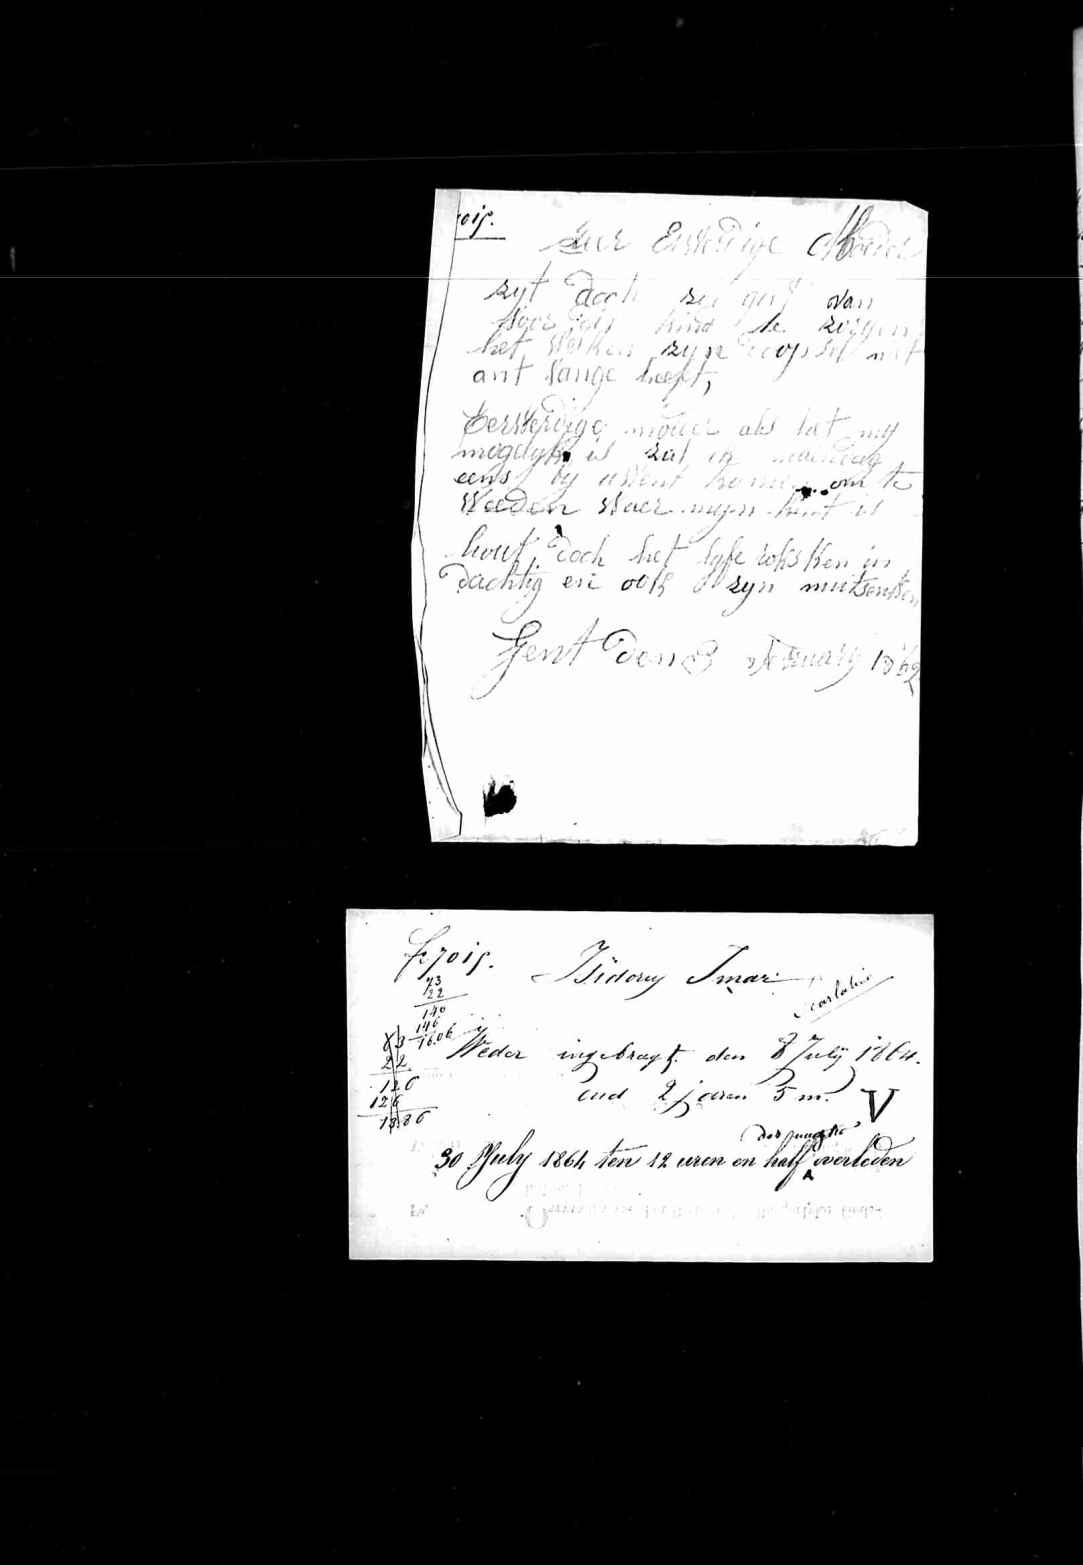 7015.
Zeer Eerwerdige Moeder
zyt doch zoo goet van
voor dit kind te zorgen
het werken zyn doopsel niet
ant vange heeft,
Eerwerdige moeder als het my
mogelyk is zal ik
eens by u komen om te
Weeden waer myn kint is
hout doch het lyfe roksken in
dachtig en ook zyn mutsentien
Gent den 3 February 1862
fr. 7015.
Isidorus Imar
73
22
146
146
16.06
63
22
126
126
13.86
Weder ingebragt den 8 July 1864.
oud 2 jaren 5 m. V
des
30 July 1864 ten 12 uren en half overleden